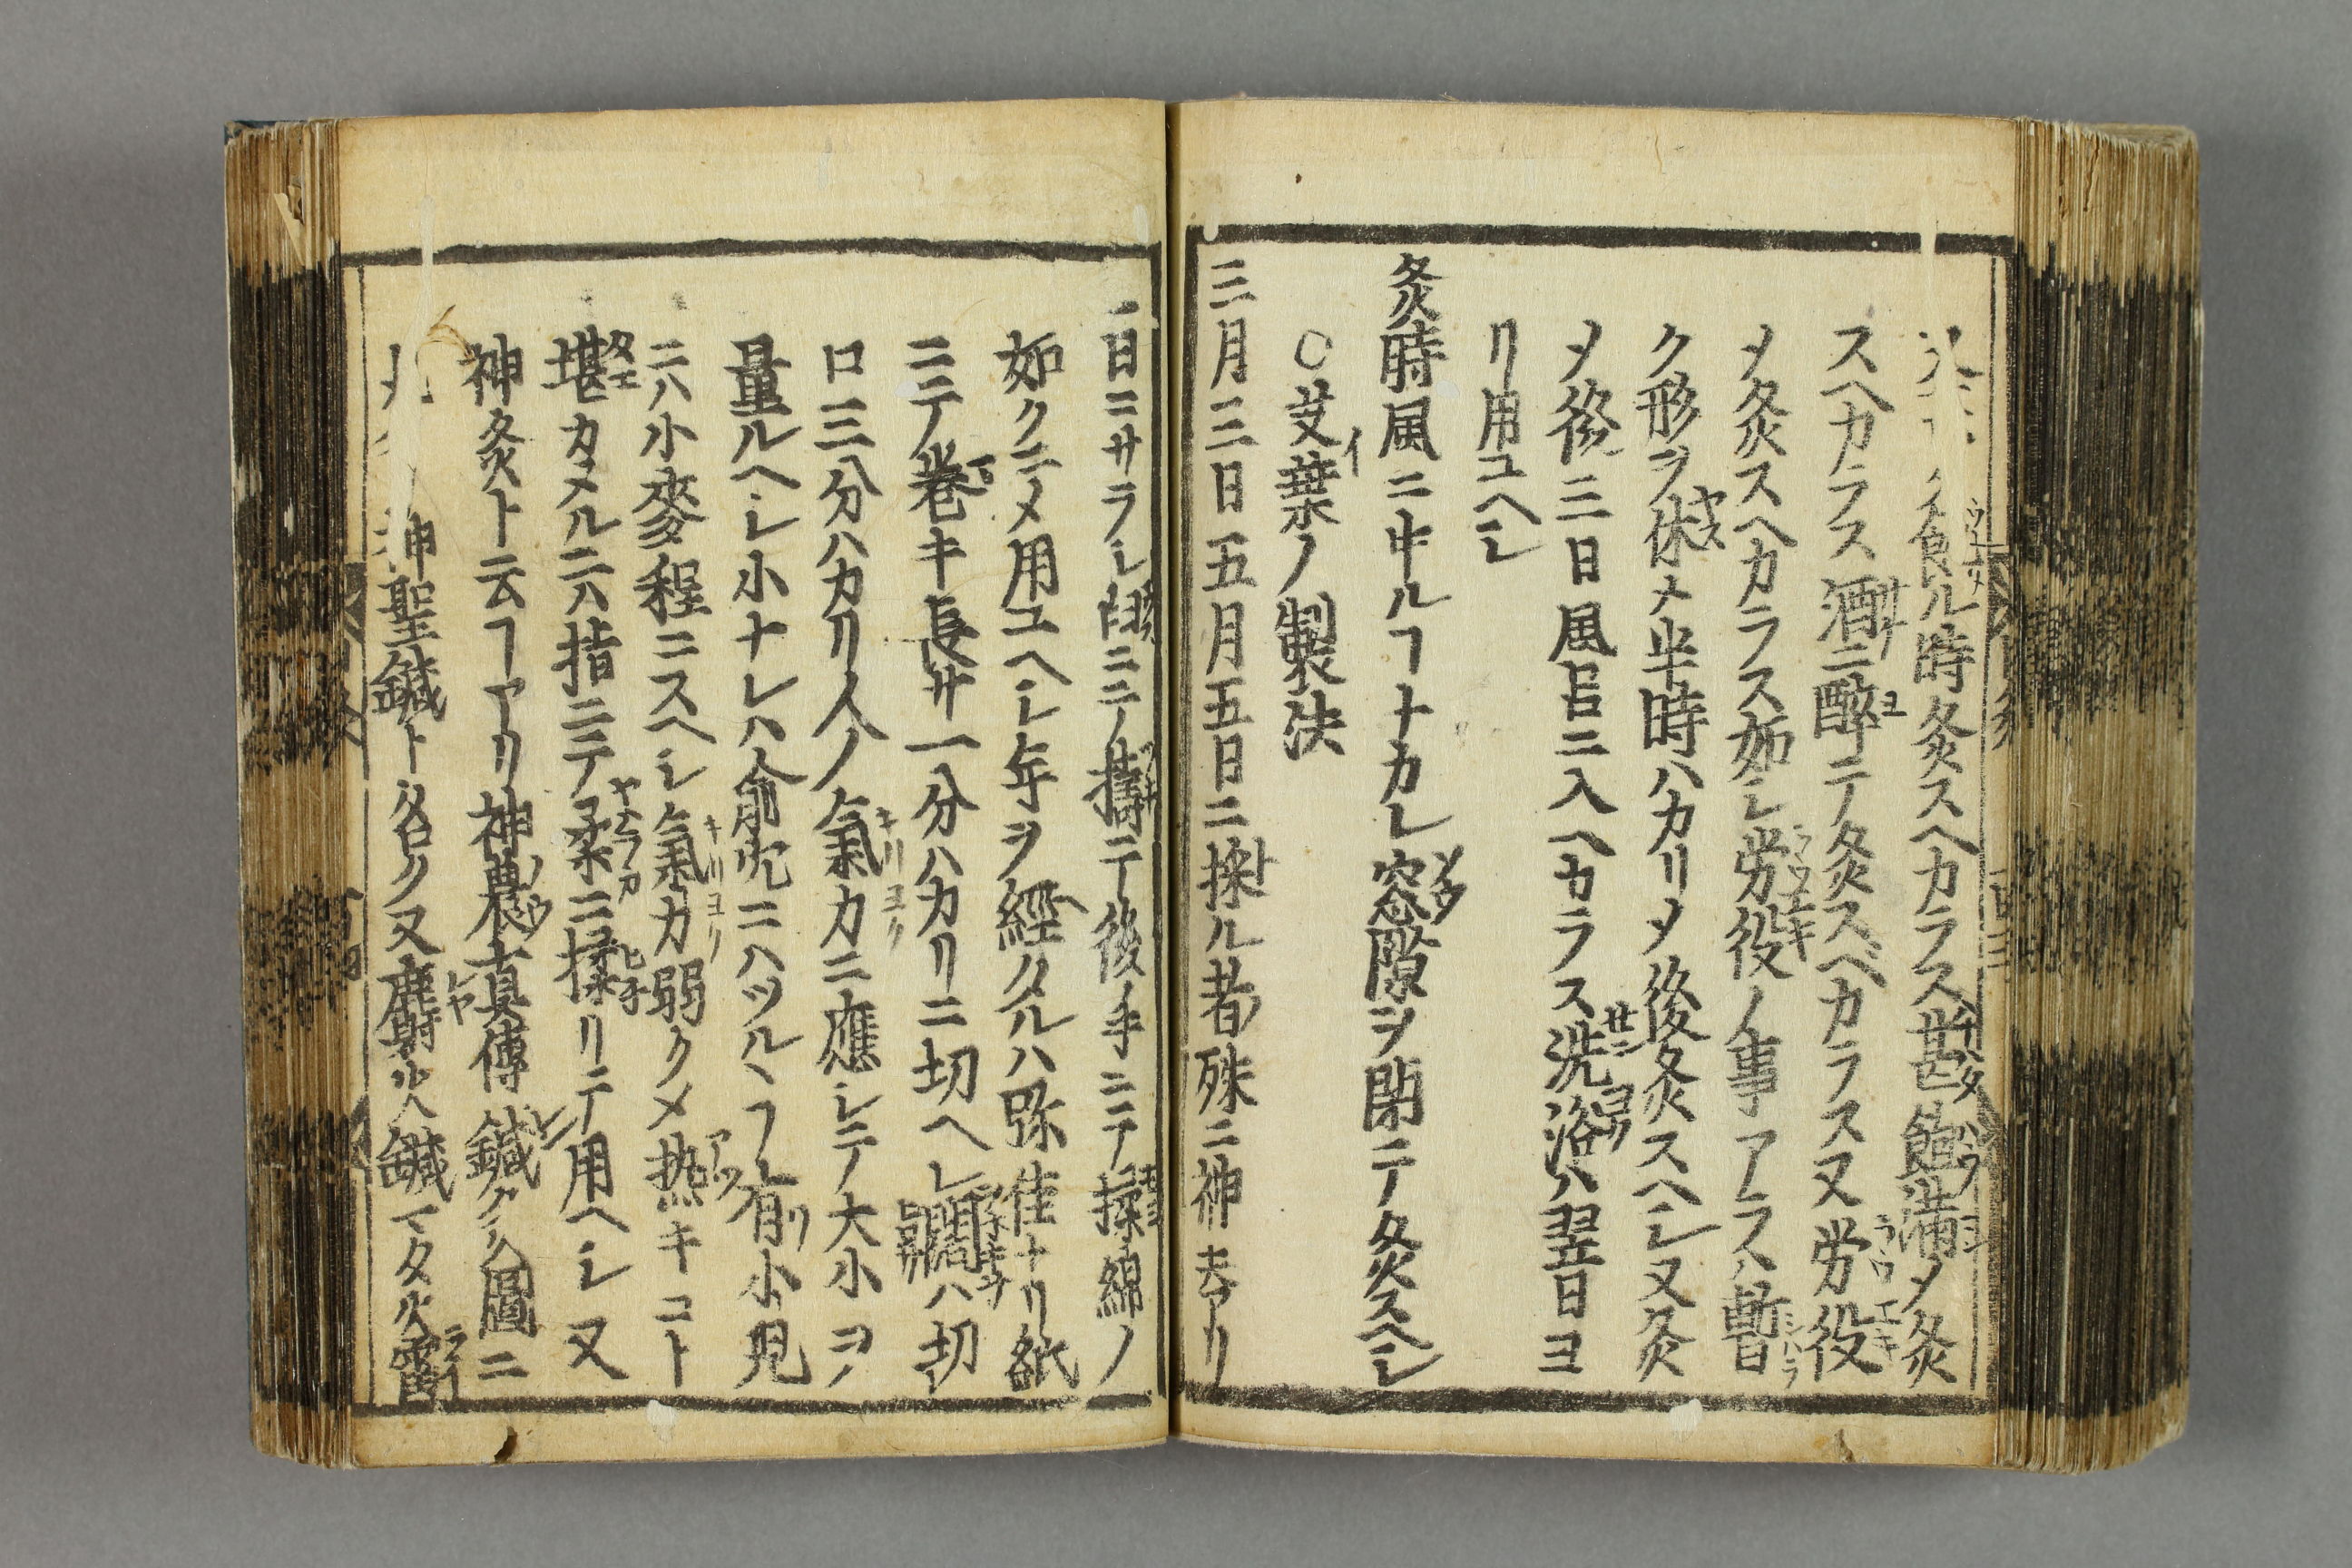 食ル時灸スヘカラス甚飽満乄灸
スヘカラス酒ニ醉テ灸スベカラス又労役
乄灸スヘカラス如シ労役ノ事アラハ暫
ク形ヲ休メ半時ハカリ乄後灸スヘシ又灸
乄後三日風呂ニ入ヘカラス洗浴ハ翌日ヨ
リ用ユヘシ
灸時風ニ中ルヿナカレ窓隙ヲ閉テ灸スヘシ
○艾葉ノ製法
三月三日五月五日ニ採ル者殊ニ神キアリ
日ニサラシ臼ニテ擣テ後手ニテ揉綿ノ
如クニ乄用ユヘシ年ヲ經タルハ弥佳ナリ紙
ニテ巻キ長サ一分ハカリニ切ヘシ ハ切
口三分ハカリ人ノ氣力ニ應シテ大小ヲ
量ルヘシ小ナレハ兪穴ニハツルヽヿ有小児
ニハ小麥程ニスヘシ氣力弱ク乄热キコト
堪カタルニハ指ニテ柔ニ揉リテ用ヘシ又
神灸ト云フアリ神農真傳鍼灸圖ニ
神聖鍼ト名ク又麝火鍼マタ火雷